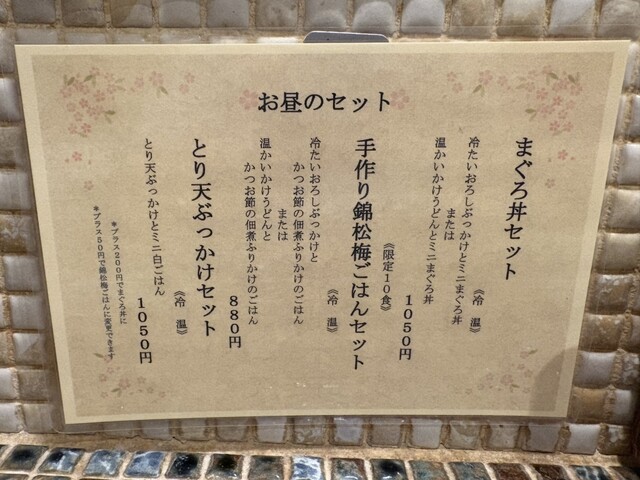 お昼のセット
まぐろ丼セット
《冷　温》
冷たいおろしぶっかけとミニまぐろ丼
または
温かいかけうどんとミニまぐろ丼
《限定10食》
1050円
手作り錦松梅ごはんセット
《冷　温》
冷たいおろしぶっかけと
かつお節の佃煮ふりかけのごはん
または
温かいかけうどんと
かつお節の佃煮ふりかけのごはん
880円
とり天ぶっかけセット
《冷　温》
とり天ぶっかけとミニ白ごはん
1050円
*プラス200円でまぐろ丼に
*プラス50円で錦松梅ごはんに変更できます